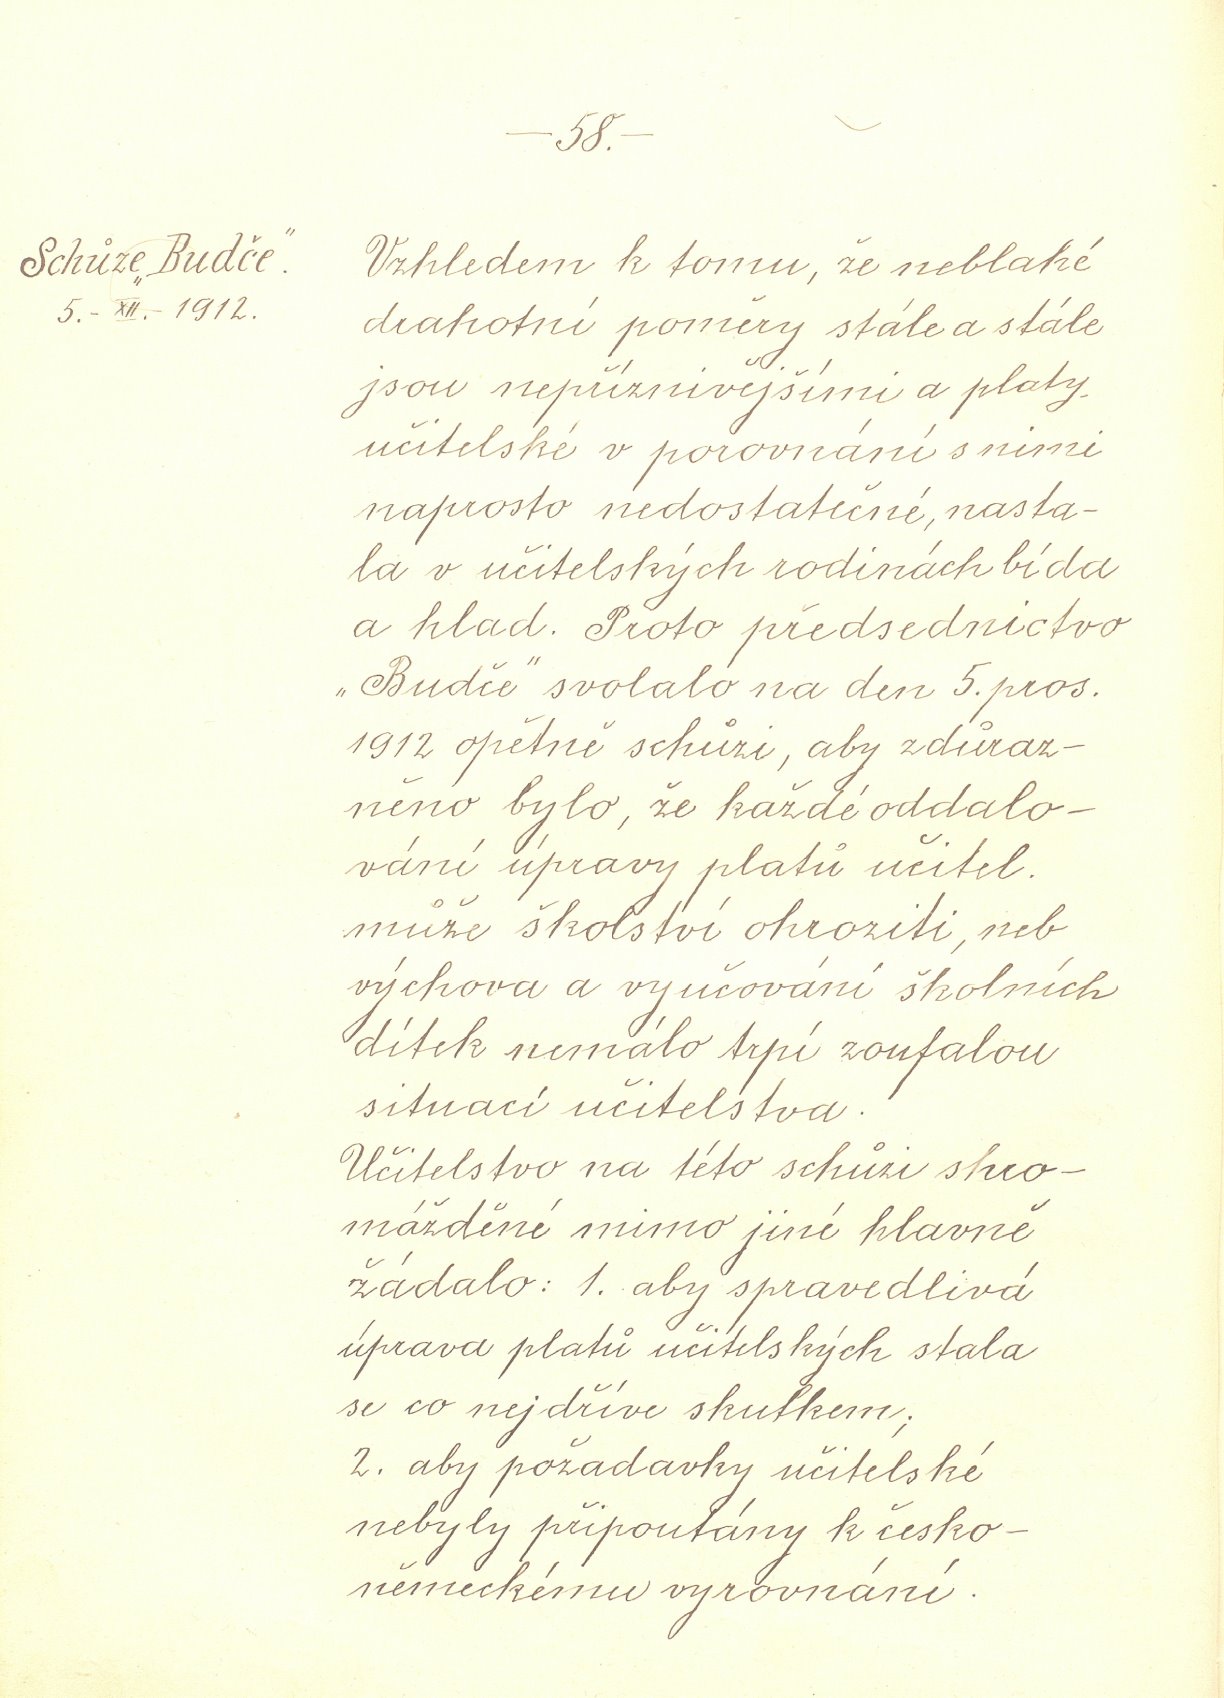 — 58. —
Schůze „Budče".
5. - XII. - 1912.
Vzhledem k tomu, že neblahé
drahotní poměry stále a stále
jsou nepříznivějšími a platy
učitelské v porovnání s nimi
naprosto nedostatečné, nasta-
la v učitelských rodinách bída
a hlad. Proto předsednictvo
„Budče" svolalo na den 5. pros.
1912 opětně schůzi, aby zdůraz-
něno bylo, že každé oddalo-
vání úpravy platů učitel.
může školství ohroziti, neb
výchova a vyučování školních
dítek nemálo trpí zoufalou
situací učitelstva.
Učitelstvo na této schůzi shro-
mážděné mimo jiné hlavně
žádalo: 1. aby spravedlivá
úprava platů učitelských stala
se co nejdříve skutkem;
2. aby požadavky učitelské
nebyly připoutány k česko-
německému vyrovnání.